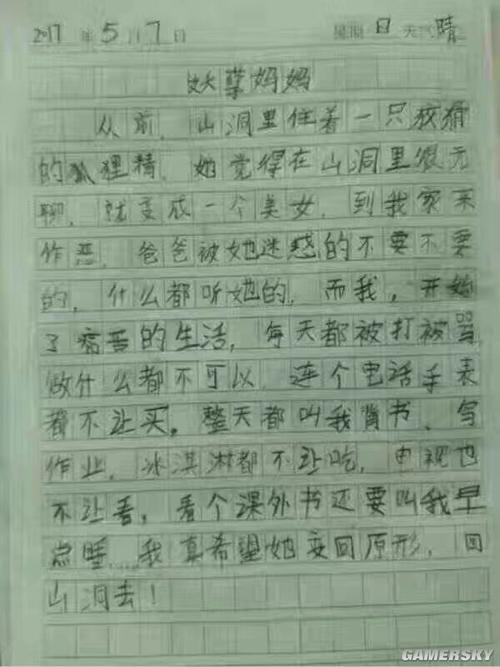 2017年5月7日 星期日 天气晴
妖孽妈妈
从前，山洞里住着一只狡猾
的狐狸精，她觉得在山洞里很无
聊，就变成一个美女，到我家来
作恶，爸爸被她迷惑的不要不要
的，什么都听她的，而我，开始
了痛苦的生活，每天都被打被骂，
做什么都不可以，连个电话手表
都不让买，整天都叫我背书、写
作业，冰淇淋都不让吃，电视也
不让看，看个课外书还要叫我早
点睡，我真希望她变回原形，回
山洞去！
GAMERSKY